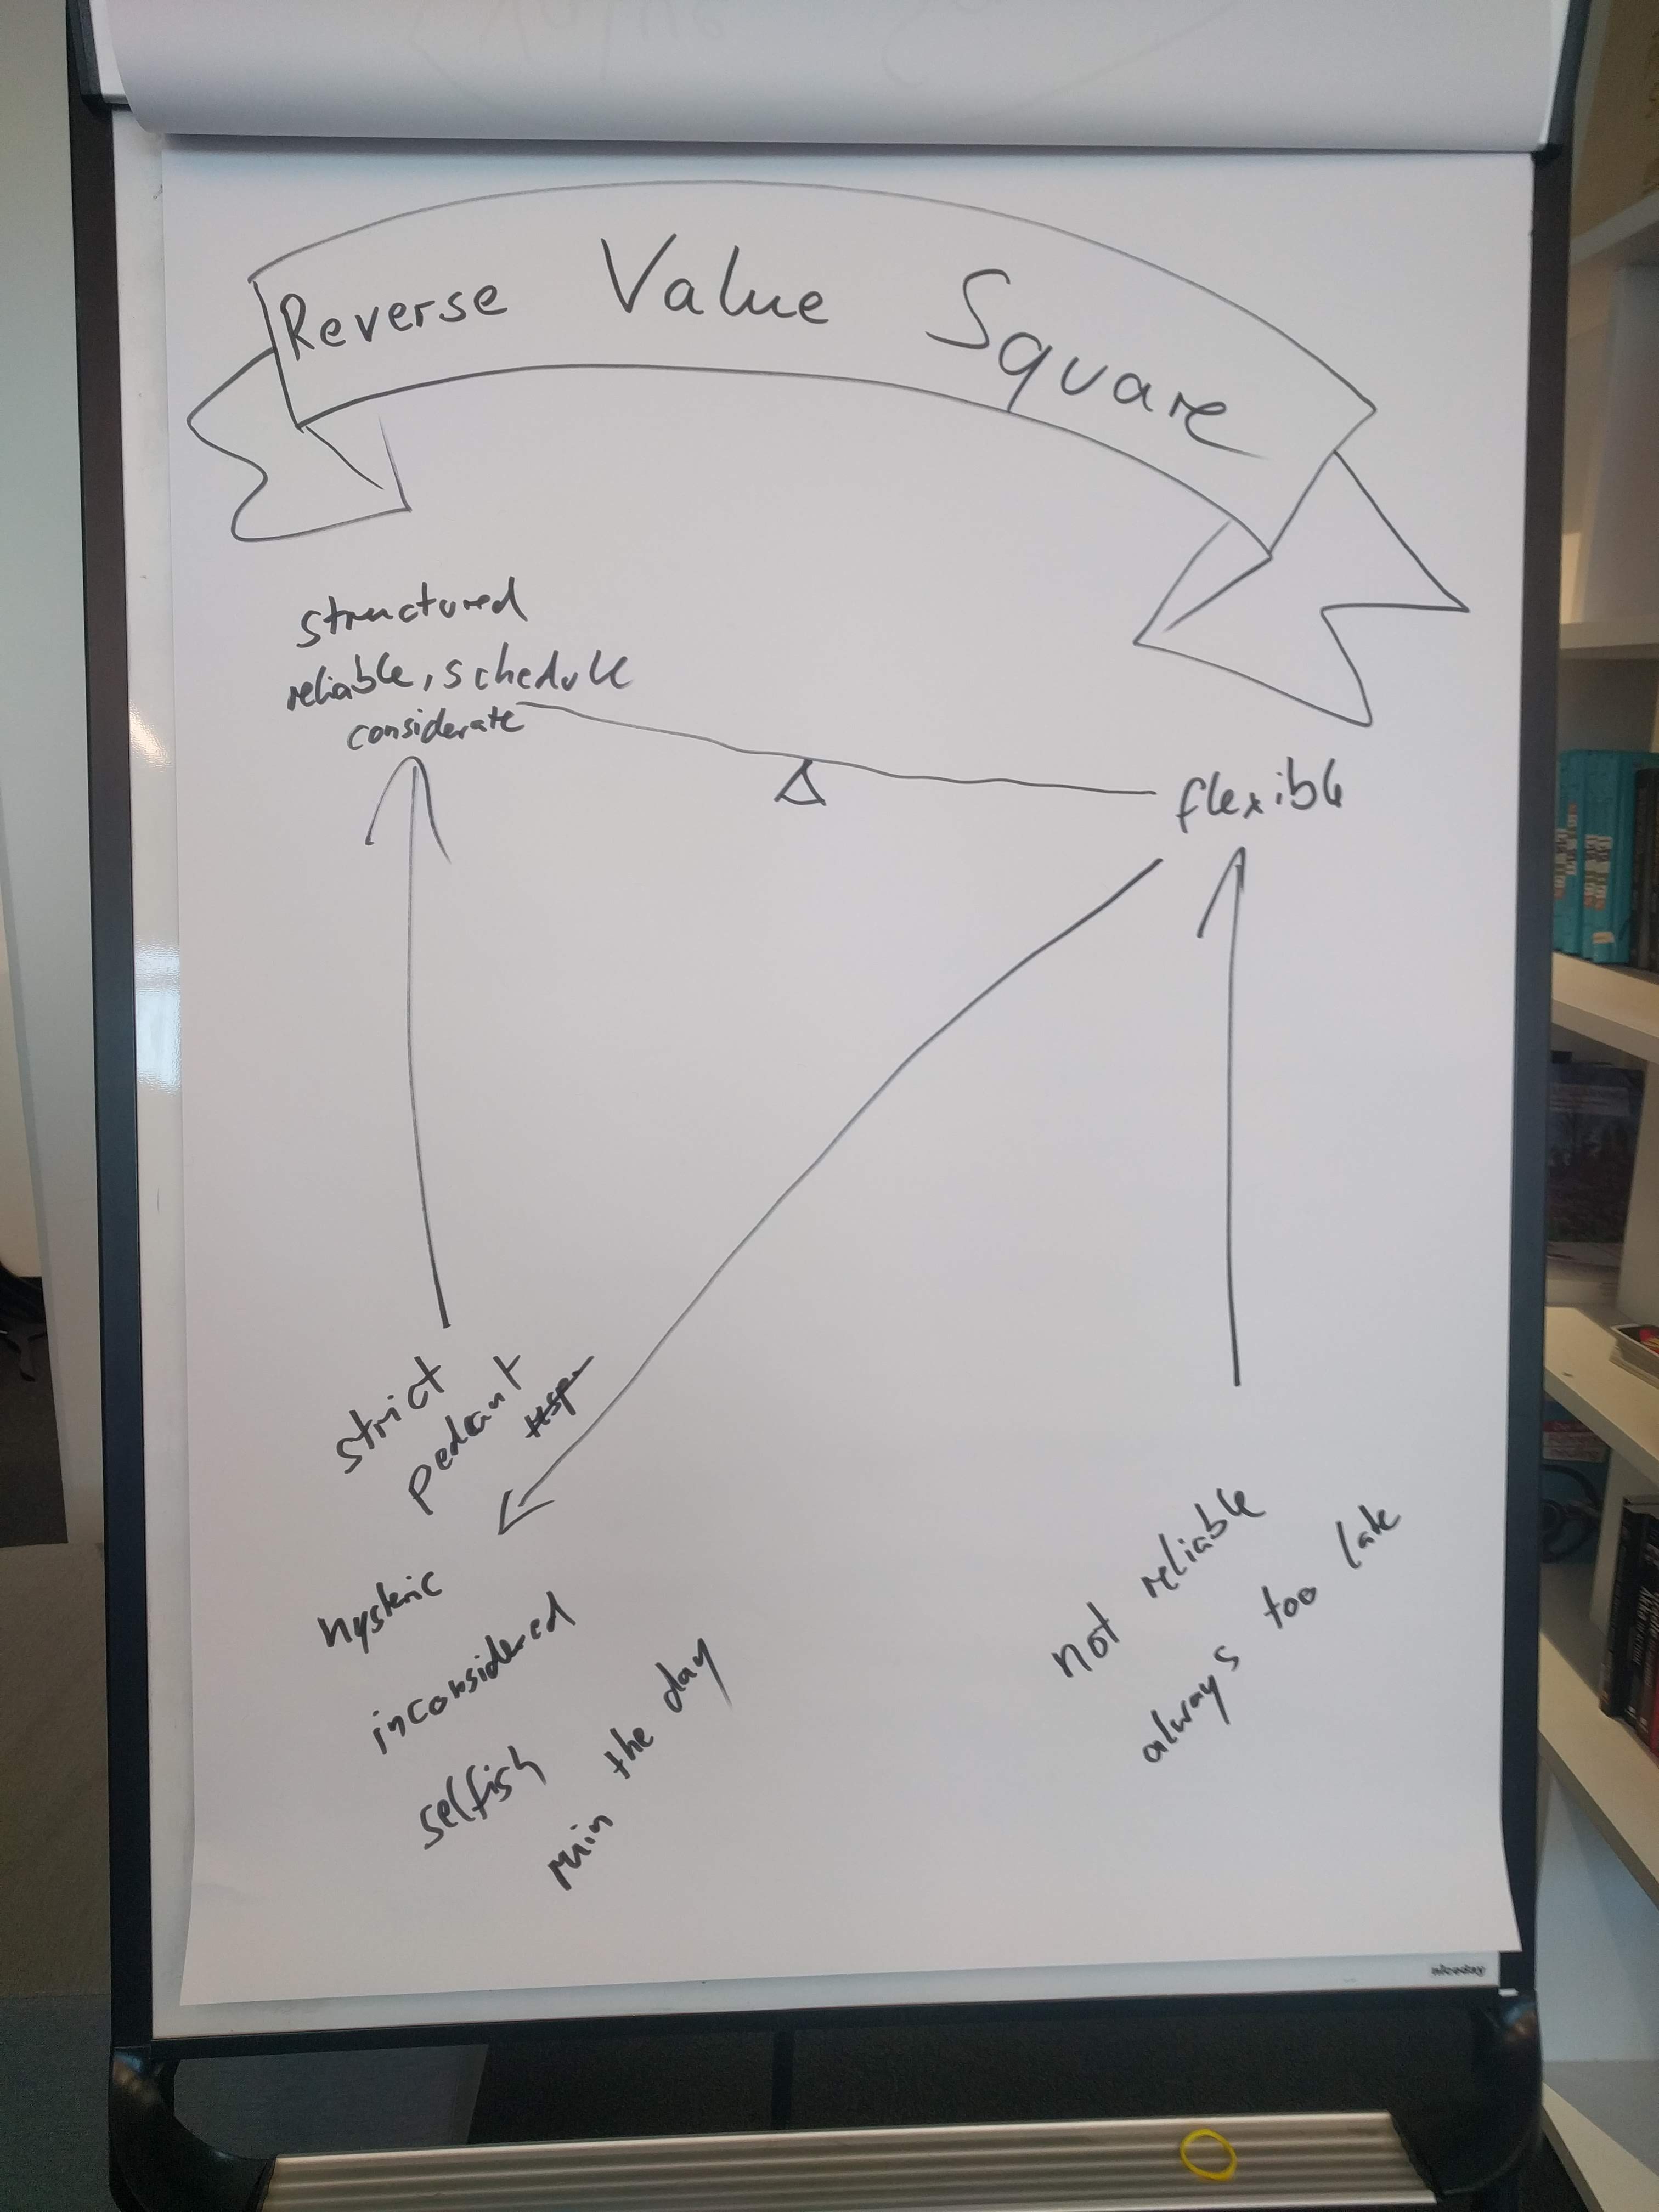 Reverse Value Square
structured
reliable, schedule
considerate
flexible
strict
pedant
hysteric
inconsidered
selfish
ruin the day
not reliable
always too late
niceday